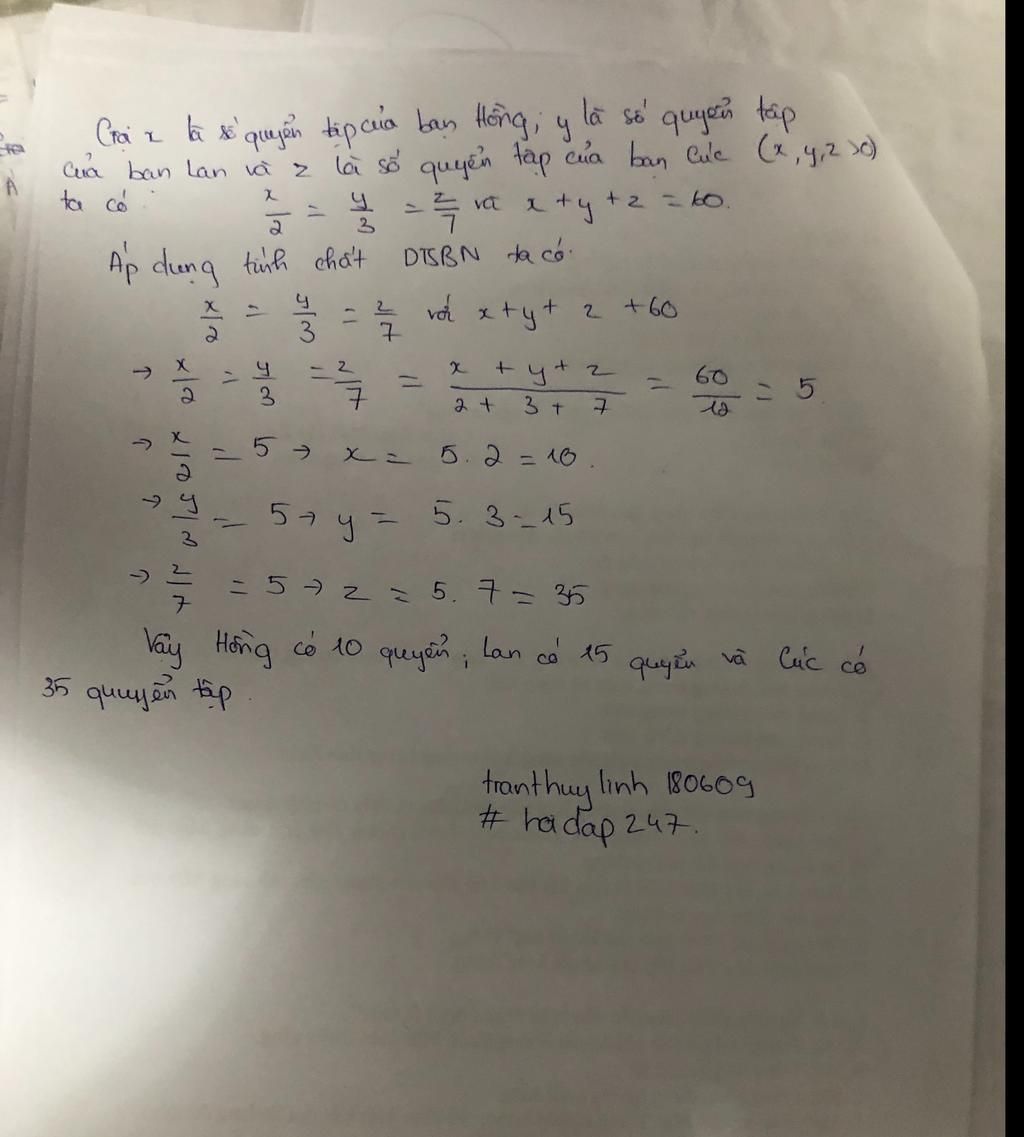 Gọi x là số quyển tập của bạn Hồng, y là số quyển tập
của bạn Lan và z là số quyển tập của bạn Cúc (x,y,z >0)
ta có x/2 = y/3 = z/7 và x + y + z = 60.
Áp dụng tính chất DTSBN ta có:
x/2 = y/3 = z/7 với x + y + z + 60
→ x/2 = y/3 = z/7 = (x + y + z)/(2 + 3 + 7) = 60/12 = 5
→ x/2 = 5 → x = 5.2 = 10.
→ y/3 = 5 → y = 5.3 = 15
→ z/7 = 5 → z = 5.7 = 35
Vậy Hồng có 10 quyển, Lan có 15 quyển và Cúc có
35 quuyển tập.
tranthuylinh 180609
# hoidap 247.